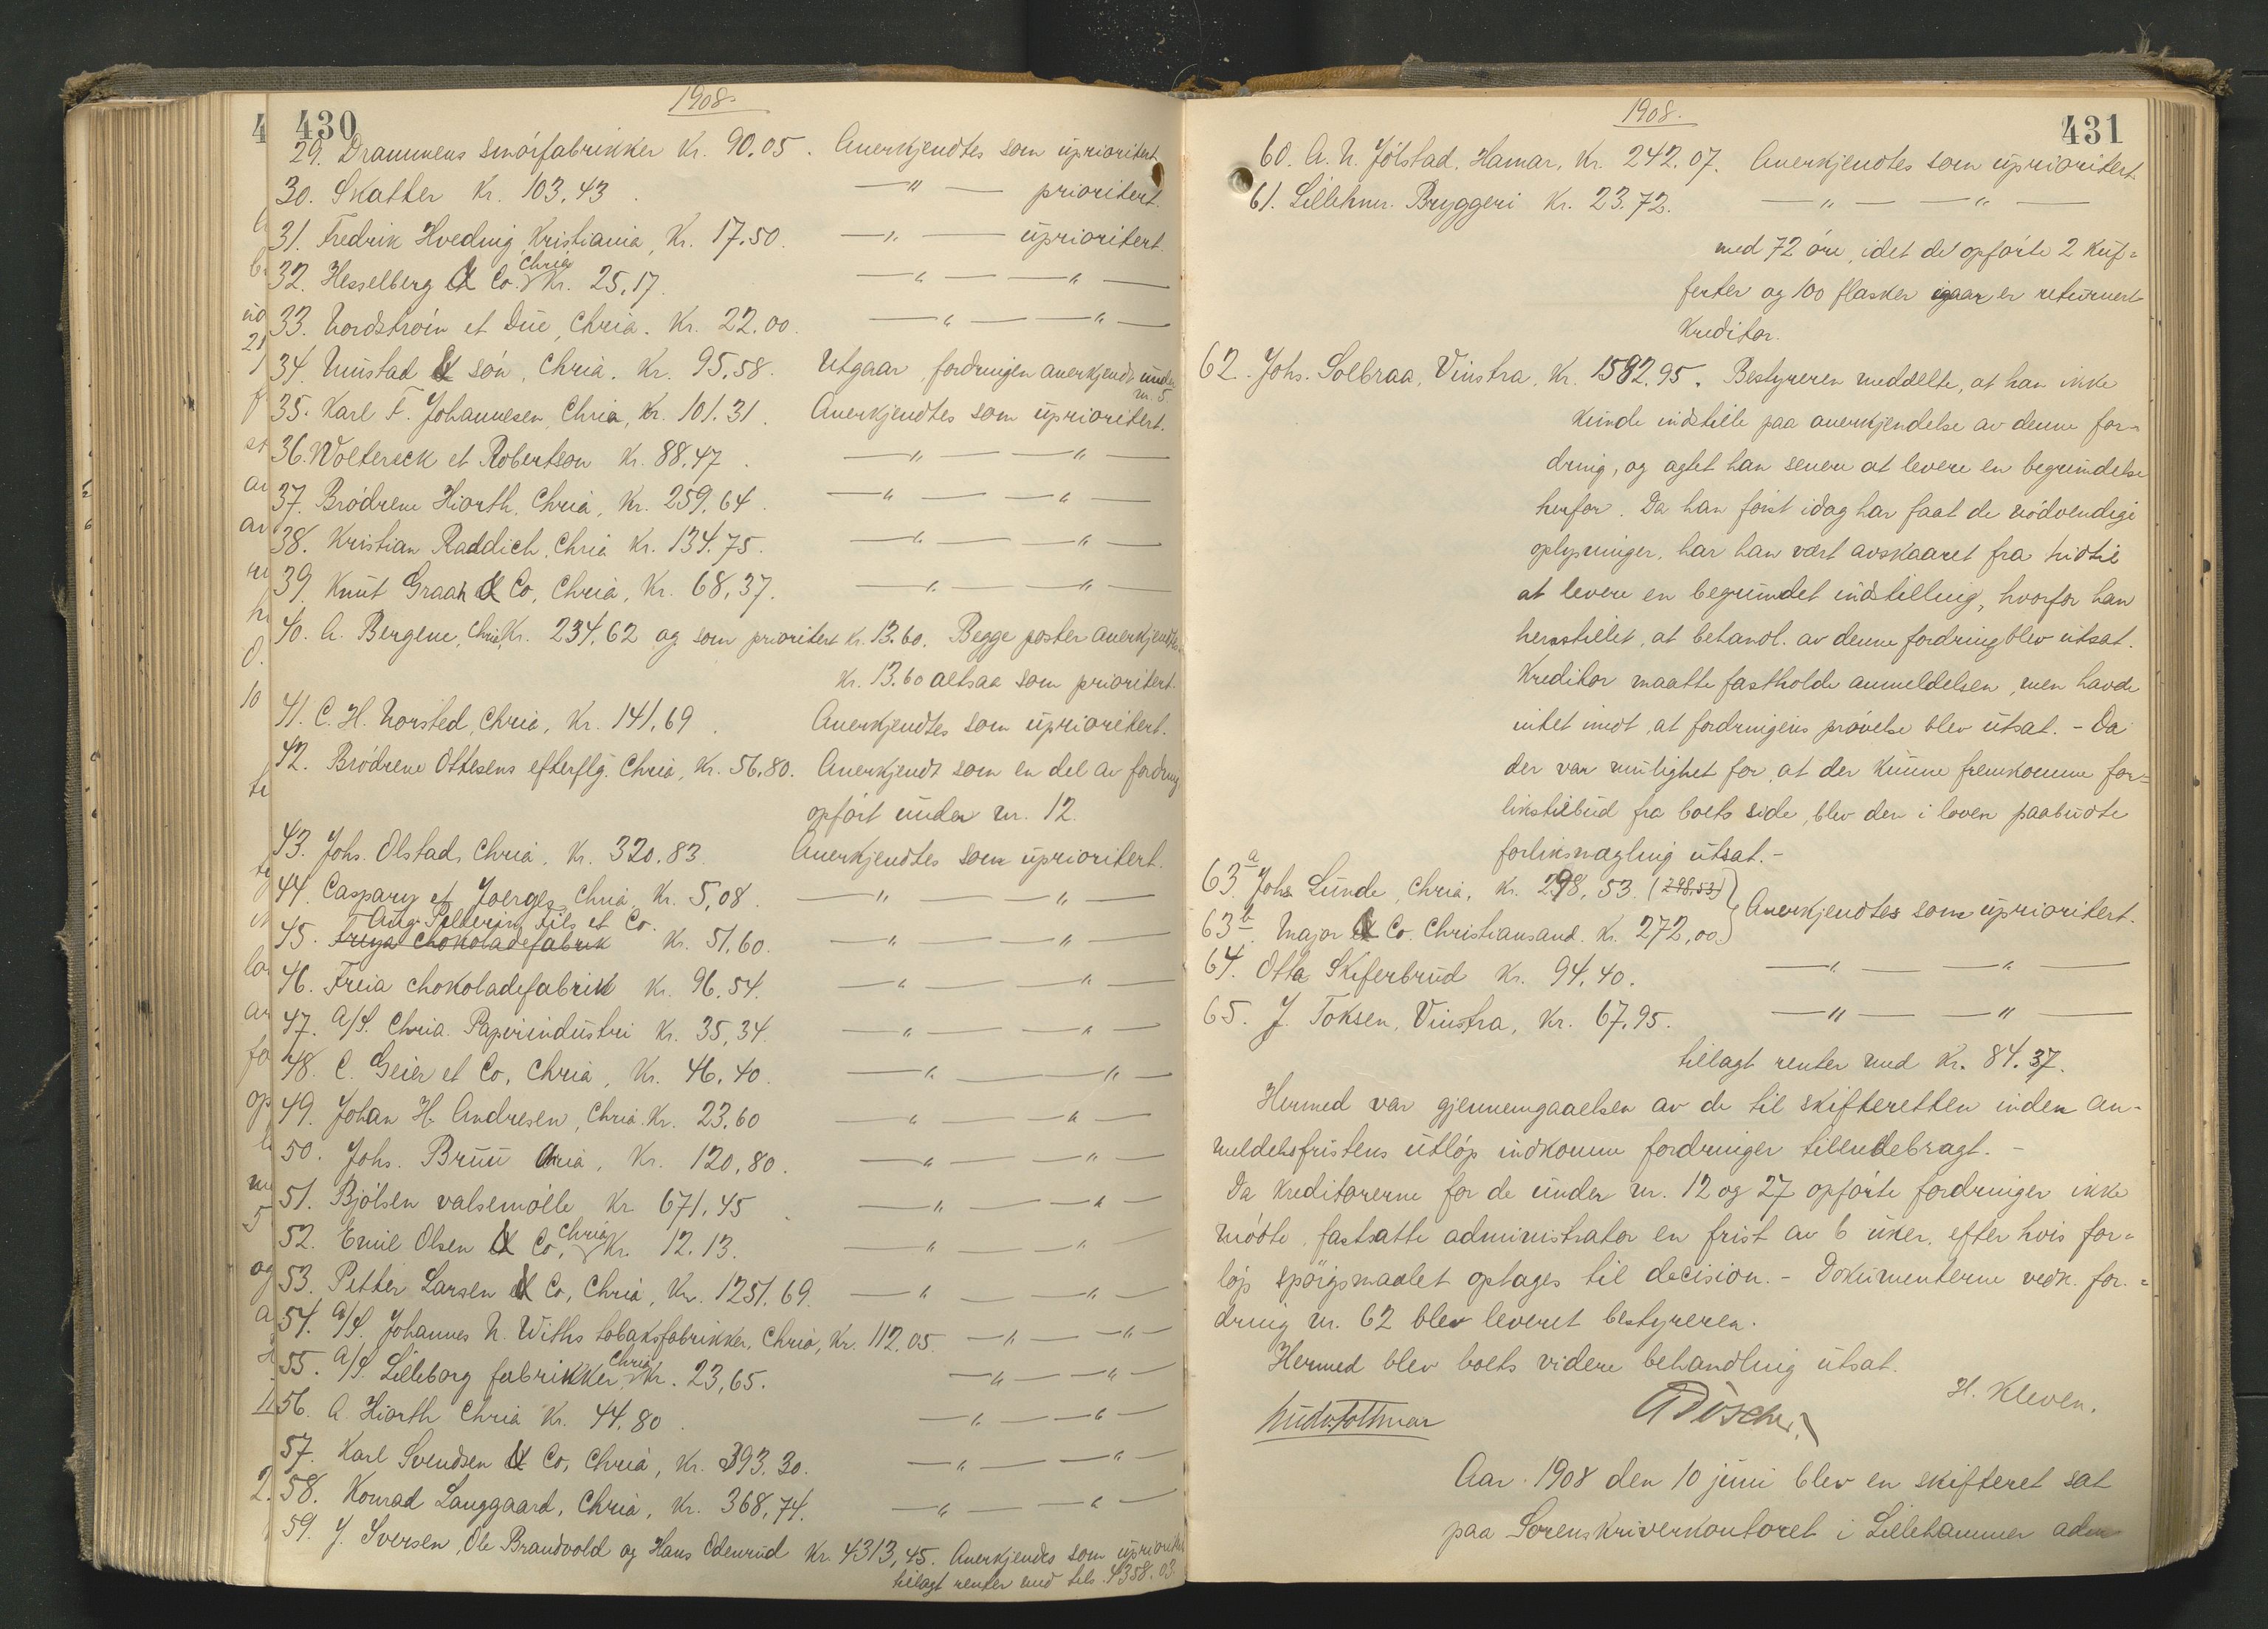 430
1908.
29. Drammens smörfabrikker Kr. 90.05. Anerkjendtes som uprioritert
30. Skatter Kr. 103.43. —"— prioritert.
31. Fredrik Hveding, Kristiania, Kr. 17.50. —"— uprioritert.
32. Hesselberg & Co. Chria Kr. 25.17. —"— —"—
33. Nordström et Due, Chria. Kr. 22.00. —"— —"—
34. Mustad & sön, Chria. Kr. 95.58. Utgaar, fordringen anerkjendt under nr. 5.
35. Karl F. Johannesen, Chria, Kr. 101.31. Anerkjendtes som uprioritert.
36. Woltereck et Robertson Kr. 88.47. —"— —"—
37. Brödrene Hiorth, Chria, Kr. 259.64. —"— —"—
38. Kristian Raddich, Chria Kr. 134.75. —"— —"—
39. Knut Graah & Co, Chria, Kr. 68.37. —"— —"—
40. A. Bergene, Chria, Kr. 234.62 og som prioritert Kr. 13.60. Begge poster anerkjendtes
Kr. 13.60 altsaa som prioritert.
41. C. H. Norsted, Chria, Kr. 141.69. Anerkjendtes som uprioritert.
42. Brödrene Ottesens efterflg. Chria, Kr. 56.80. Anerkjendt som en del av fordring
opfört under nr. 12.
43. Johs. Olstad, Chria, Kr. 320.83. Anerkjendtes som uprioritert.
44. Caspary et Joerges, Chria, Kr. 5,08. —"— —"—
Aug. Pellerin fils et Co.
45. Freya Chokoladefabrik Kr. 51,60. —"— —"—
46. Freia chokoladefabrik Kr. 96.54. —"— —"—
47. A/S. Chria. Papirindustri Kr. 35,34. —"— —"—
48. C. Geier et Co, Chria, Kr. 46.40. —"— —"—
49. Johan H. Andresen, Chria. Kr. 23.60 —"— —"—
50. Johs. Bruu Chria, Kr. 120,80. —"— —"—
51. Bjölsen valsemölle Kr. 671.45. —"— —"—
52. Emil Olsen & Co, Chria Kr. 12.13. —"— —"—
53. Petter Larsen & Co, Chria, Kr. 1251.69. —"— —"—
54. A/S. Johannes N. Withs tobaksfabrikker, Chria, Kr. 112.05. —"— —"—
55. A/S. Lilleborg fabrikker, Chria Kr. 23,65. —"— —"—
56. A. Hiorth Chria Kr. 44.80. —"— —"—
57. Karl Svendsen & Co, Chria, Kr. 393.30. —"— —"—
58. Konrad Langgaard, Chria, Kr. 368,74. —"— —"—
59. J. Iversen, Ole Brandvold og Hans Odenrud Kr. 4313,45. Anerkjendes som uprioritert
tillagt renter med tils. 4358.03
431
1908.
60. A. N. Jölstad, Hamar, Kr. 242.07. Anerkjendtes som uprioritert.
61. Lillehmr. Bryggeri Kr. 23.72. —"— —"—
med 72 öre, idet de opförte 2 kuf=
ferter og 100 flasker igaar er returnert
Kreditor.
62. Johs. Solbraa, Vinstra, Kr. 1582.95. Bestyreren meddelte, at han ikke
kunde indstille paa anerkjendelse av denne for=
dring, og agtet han senere at levere en begrundelse
herfor. Da han först idag har faat de nödvendige
oplysninger, har han vært avskaaret fra hidtil
at levere en begrundet indstilling, hvorfor han
henstillet, at behandl. av denne fordring blev utsat.
Kreditor maatte fastholde anmeldelsen, men havde
intet imot, at fordringens prövelse blev utsat. - Da
der var mulighet for, at der kunne fremkomme for=
likstilbud fra boets side, blev den i loven paabudte
forliksmægling utsat.-
63.a Johs Lunde, Chria, Kr. 298,53. (298.53)
63b. Major & Co. Christiansand. Kr. 272,00. } Anerkjendtes som uprioritert.
64. Otta Skiferbrud Kr. 94,40. —"— —"—
65. J. Toksen, Vinstra, Kr. 67.95. —"— —"—
tillagt renter med Kr. 84.37.
Hermed var gjennemgaaelsen av de til skifteretten inden an-
meldelsfristens utlöp indkomne fordringer tilendebragt. -
Da Kreditorerne for de under nr. 12 og 27 opförte fordringer ikke
mödte, fastsatte administrator en frist av 6 uker, efter hvis for=
löp spörgsmaalet optages til decision. - Dokumenterne vedk. for=
dring nr. 62 blev leveret bestyreren.
Hermed blev boets videre behandling utsat.
H. Kleven.
Aar 1908 den 10 juni blev en skifteret sat
paa Sorenskriverkontoret i Lillehammer adm